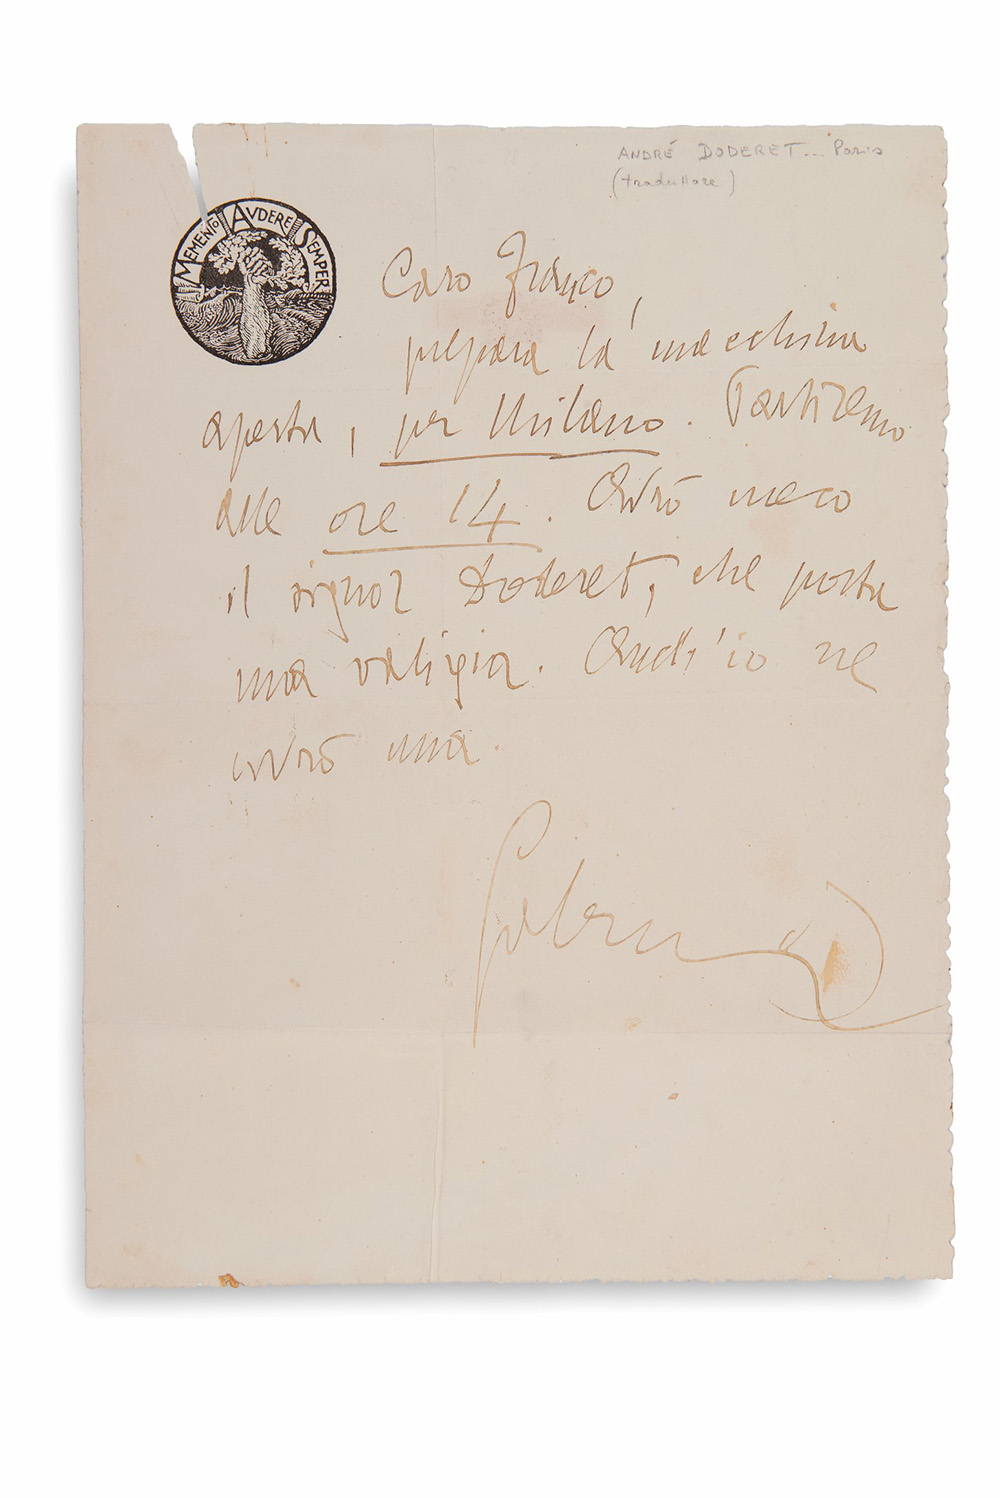 ANDRÉ DODERET... Paris
(traduttore)
MEMENTO AVDERE SEMPER
Caro Franco,
prepara la macchina
aperta, per Milano. Partiremo
alle ore 14. Avrò meco
il signor Doderet, che porta
una valigia. Anch'io ne
avrò una.
Gabriele d'A